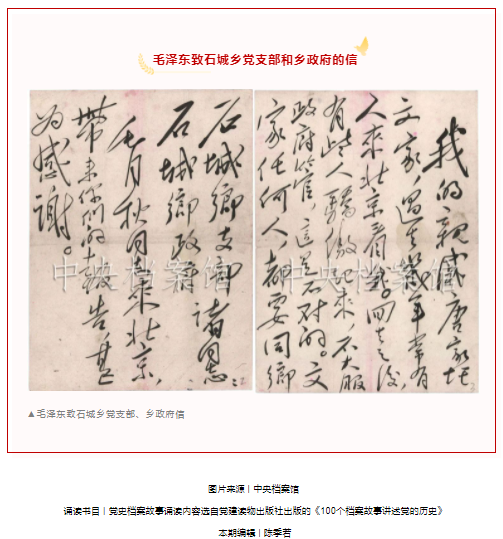 毛泽东致石城乡党支部和乡政府的信
石城鄉支部 諸同志：
石城鄉政府
毛月秋同志來北京，
帶來你們的報告，甚
为感謝。
我的親戚唐家圫
文家，过去幾年常有
人來北京看我。回去之後，
有些人驕傲起來，不大服
政府管，這是不对的。文
家任何人，都要同鄉
中央档案馆
中央档案馆
▲毛泽东致石城乡党支部、乡政府信
图片来源 | 中央档案馆
诵读书目 | 党史档案故事诵读内容选自党建读物出版社出版的《100个档案故事讲述党的历史》
本期编辑 | 陈季若